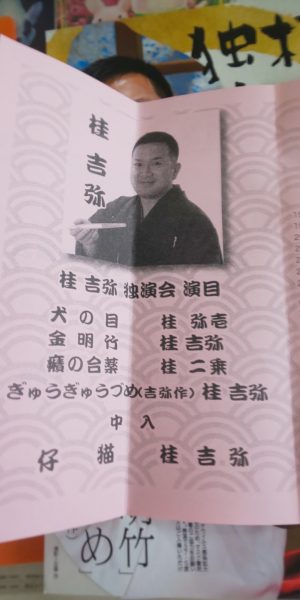 独
桂吉弥
桂 吉弥 独演会 演目
犬の目 桂 弥壱
金明竹 桂 吉弥
癪の合薬 桂 二乗
ぎゅうぎゅうづめ(吉弥作) 桂 吉弥
中入
仔猫 桂 吉弥
明竹」
め